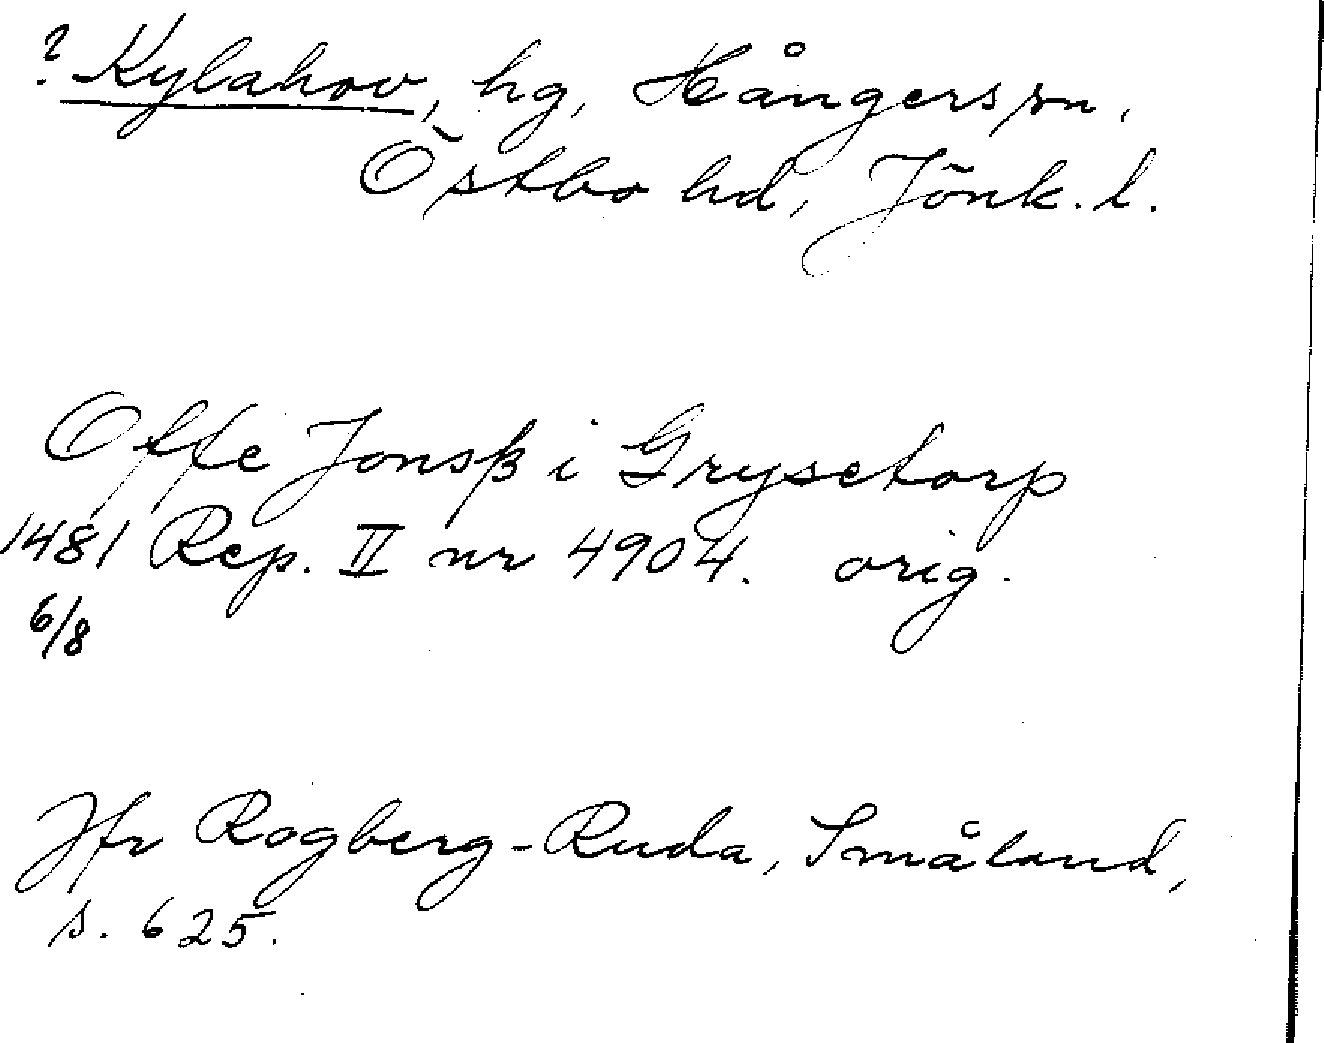 ? Kylahov, hg, Hångers sn,
Östbo hd, Jönk. l.
Offe Jonsß i Grysetorp
1481 Rep. II nr 4904. orig.
6/8
Jfr Rogberg-Ruda, Småland,
s. 625.